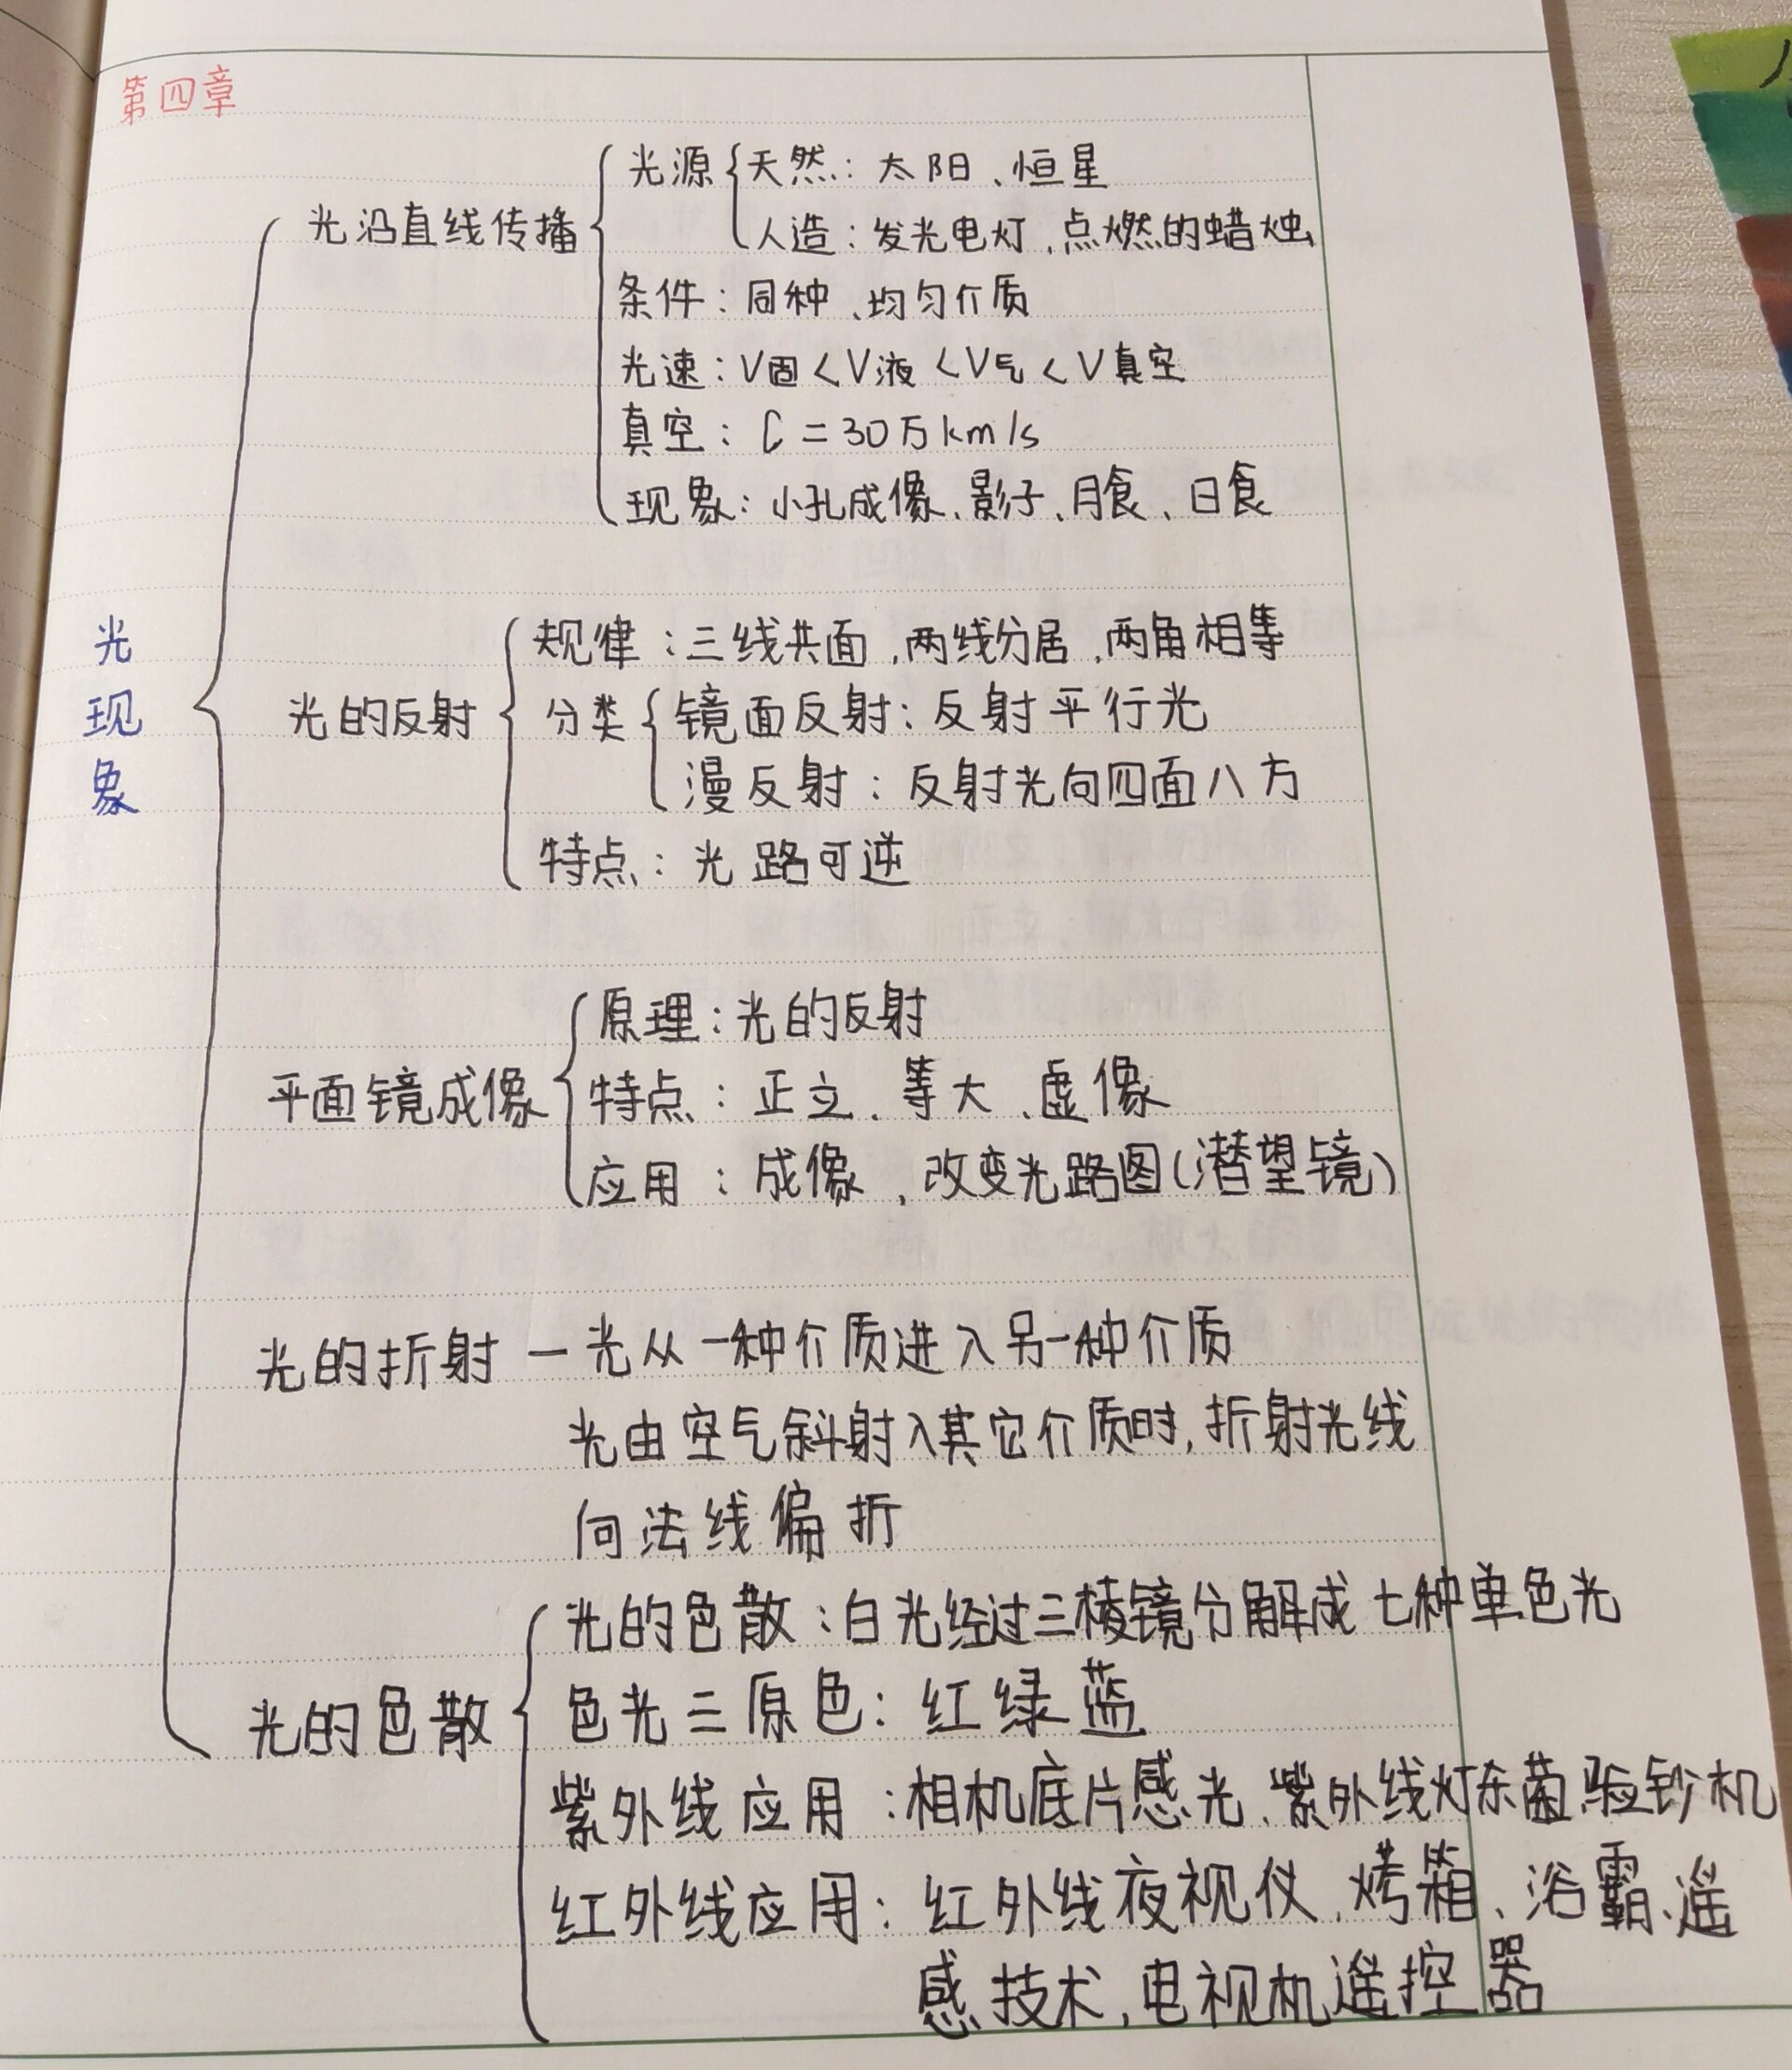 第四章
光现象
光沿直线传播
光源
天然：太阳、恒星
人造：发光电灯、点燃的蜡烛
条件：同种、均匀介质
光速：V固<V液<V气<V真空
真空：C=30万km/s
现象：小孔成像、影子、月食、日食
光的反射
规律：三线共面，两线分居，两角相等
分类
镜面反射：反射平行光
漫反射：反射光向四面八方
特点：光路可逆
平面镜成像
原理：光的反射
特点：正立、等大、虚像
应用：成像，改变光路图(潜望镜)
光的折射—光从一种介质进入另一种介质
光由空气斜射入其它介质时，折射光线
向法线偏折
光的色散
光的色散：白光经过三棱镜分解成七种单色光
色光三原色：红绿蓝
紫外线应用：相机底片感光、紫外线灯杀菌、验钞机
红外线应用：红外线夜视仪、烤箱、浴霸、遥
感技术，电视机遥控器